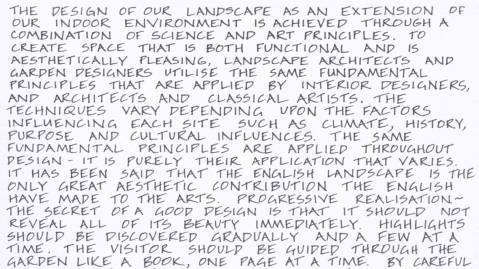 THE DESIGN OF OUR LANDSCAPE AS AN EXTENSION OF
OUR INDOOR ENVIRONMENT IS ACHIEVED THROUGH A
COMBINATION OF SCIENCE AND ART PRINCIPLES. TO
CREATE SPACE THAT IS BOTH FUNCTIONAL AND IS
AESTHETICALLY PLEASING, LANDSCAPE ARCHITECTS AND
GARDEN DESIGNERS UTILISE THE SAME FUNDAMENTAL
PRINCIPLES THAT ARE APPLIED BY INTERIOR DESIGNERS,
AND ARCHITECTS AND CLASSICAL ARTISTS. THE
TECHNIQUES VARY DEPENDING UPON THE FACTORS
INFLUENCING EACH SITE SUCH AS CLIMATE, HISTORY,
PURPOSE AND CULTURAL INFLUENCES. THE SAME
FUNDAMENTAL PRINCIPLES ARE APPLIED THROUGHOUT
DESIGN - IT IS PURELY THEIR APPLICATION THAT VARIES.
IT HAS BEEN SAID THAT THE ENGLISH LANDSCAPE IS THE
ONLY GREAT AESTHETIC CONTRIBUTION THE ENGLISH
HAVE MADE TO THE ARTS. PROGRESSIVE REALISATION~
THE SECRET OF A GOOD DESIGN IS THAT IT SHOULD NOT
REVEAL ALL OF ITS BEAUTY IMMEDIATELY. HIGHLIGHTS
SHOULD BE DISCOVERED GRADUALLY AND A FEW AT A
TIME. THE VISITOR SHOULD BE GUIDED THROUGH THE
GARDEN LIKE A BOOK, ONE PAGE AT A TIME. BY CAREFUL